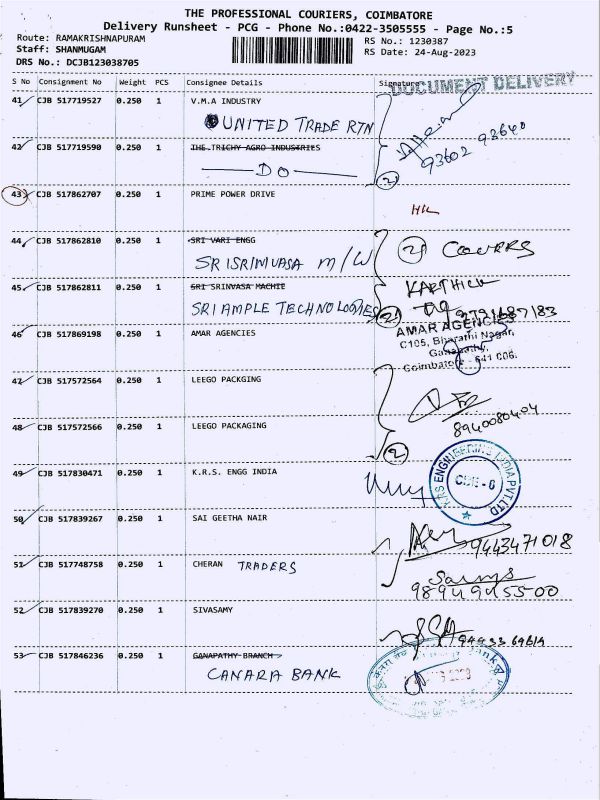 THE PROFESSIONAL COURIERS, COIMBATORE
Delivery Runsheet - PCG - Phone No.:0422-3505555 - Page No.:5
Route: RAMAKRISHNAPURAM
RS No.: 1230387
Staff: SHANMUGAM
RS Date: 24-Aug-2023
DRS No.: DCJB123038705
S No Consignment No Weight PCS Consignee Details Signature
DOCUMENT DELIVERY
41 CJB 517719527 0.250 1 V.M.A INDUSTRY
UNITED TRADE RTN
93602 92640
42 CJB 517719590 0.250 1 THE TRICHY AGRO INDUSTRIES
DO
2
43 CJB 517862707 0.250 1 PRIME POWER DRIVE
44 CJB 517862810 0.250 1 SRI VARI ENGG
2 COVERS
SRI SRINIVASA M/W
45 CJB 517862811 0.250 1 SRI SRINVASA MACHIE
KARTHICK
SRI AMPLE TECHNOLOGIES
9791687183
46 CJB 517869198 0.250 1 AMAR AGENCIES
AMAR AGENCIES
C105, Bharathi Nagar,
Ganapathy,
Coimbatore - 641 006.
47 CJB 517572564 0.250 1 LEEGO PACKGING
8940080404
48 CJB 517572566 0.250 1 LEEGO PACKAGING
2
49 CJB 517830471 0.250 1 K.R.S. ENGG INDIA
K.R.S ENGINEERING INDIA PVT.LTD
CBE - 6
50 CJB 517839267 0.250 1 SAI GEETHA NAIR
9443471018
51 CJB 517748758 0.250 1 CHERAN TRADERS
9894945500
52 CJB 517839270 0.250 1 SIVASAMY
53 CJB 517846236 0.250 1 GANAPATHY BRANCH
CANARA BANK